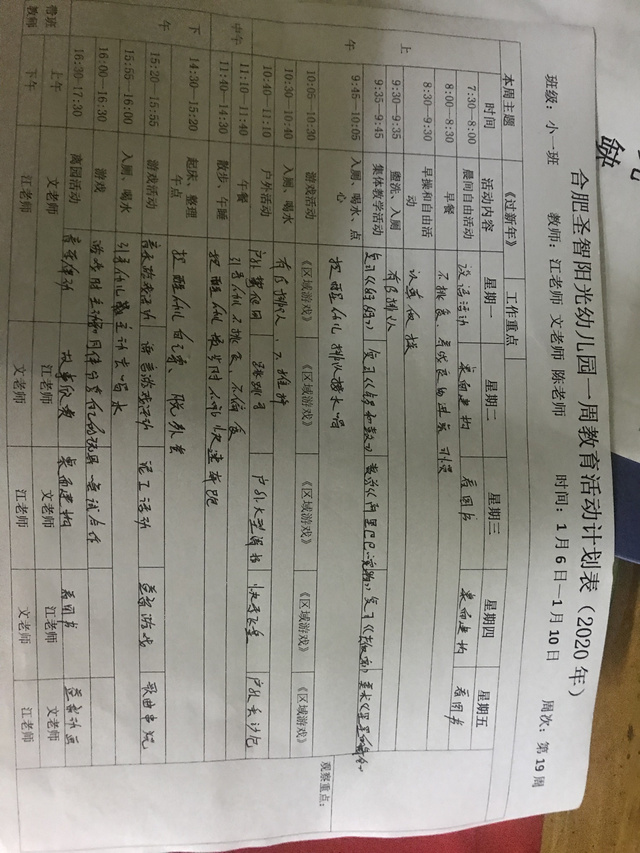 合肥圣智阳光幼儿园一周教育活动计划表（2020年）
班级：小一班 教师：江老师 文老师 陈老师 时间：1月6日—1月10日 周次：第19周
本周主题 《过新年》 工作重点
时间 活动内容 星期一 星期二 星期三 星期四 星期五
上午
7:30-8:00 晨间自由活动 桌面建构 看图书 桌面建构 看图书
8:00-8:30 早餐 不挑食、养成良好进餐习惯
8:30-9:30 早操和自由活动 认真做操
9:30-9:35 盥洗、入厕 有序排队
9:35-9:45 集体教学活动
9:45-10:05 入厕、喝水、点心 提醒幼儿排队接水喝
10:05-10:30 游戏活动 《区域游戏》 《区域游戏》 《区域游戏》 《区域游戏》 《区域游戏》
10:30-10:40 入厕、喝水 有序排队，不推挤
10:40-11:10 户外活动 户外大型滑梯 户外玩沙包
中午
11:10-11:40 午餐 引导幼儿不挑食、不偏食
11:40-14:30 散步、午睡 提醒幼儿散步时不能快速奔跑
下午
14:30-15:20 起床、整理午点 提醒幼儿自己穿、脱外套
15:20-15:55 游戏活动 音乐游戏活动 语言游戏活动 手工活动 益智游戏 歌曲串烧
15:55-16:00 入厕、喝水 引导幼儿主动去喝水
16:00-16:30 游戏
16:30-17:30 离园活动 音乐律动 故事欣赏 桌面建构 看图书 益智动画
带班教师 上午 文老师 江老师 文老师 江老师 文老师
下午 江老师 文老师 江老师 文老师 江老师
观察重点：